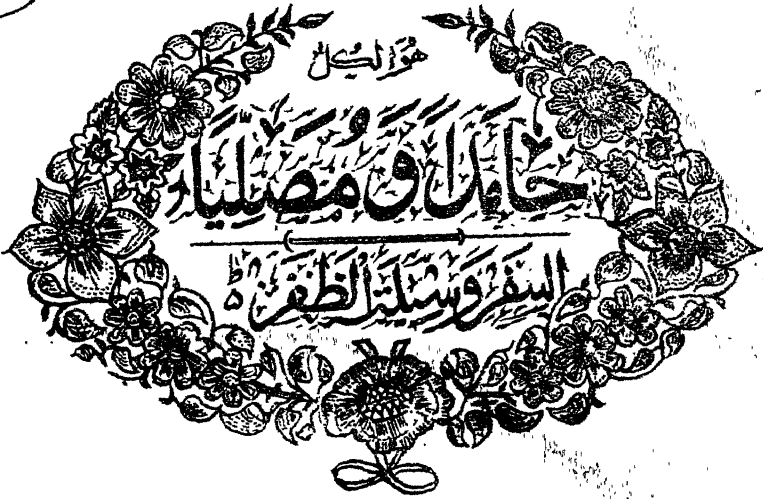 هو الكل
حامداً و مصلياً
السفر وسيلة الظفر